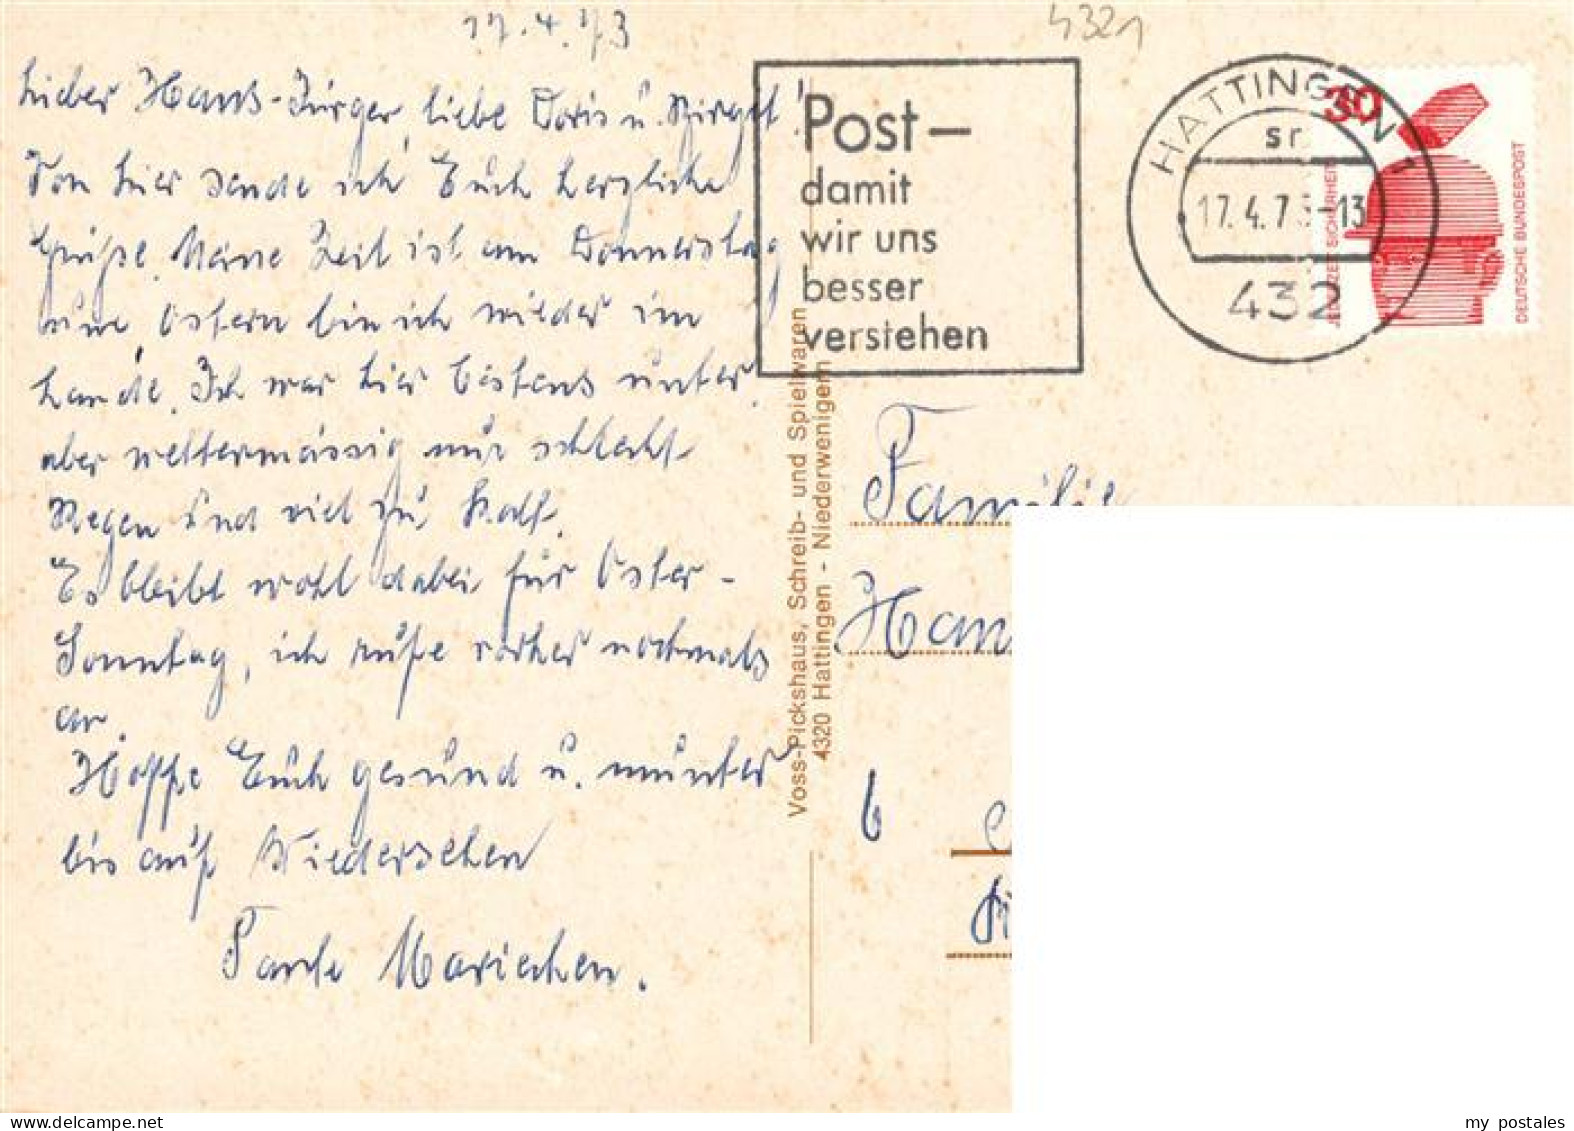 17.4.73
4321
Lieber Hans-Jürgen, liebe Doris u. Birgit!
Von hier sende ich Euch herzliche
Grüße. Meine Zeit ist am Donnerstag
um, Ostern bin ich wieder im
Lande. Ich war hier bestens unter,
aber wettermässig nur schlecht
Regen und viel zu kalt.
Es bleibt wohl dabei für Oster-
Sonntag, ich rufe vorher nochmals
an.
Hoffe Euch gesund u. munter
bis auf Wiedersehen
Tante Mariechen.
Post–
damit
wir uns
besser
verstehen
HATTINGEN 1
sr
17.4.73-13
432
30
JEDERZEIT SICHERHEIT
DEUTSCHE BUNDESPOST
Voss-Pickshaus, Schreib- und Spielwaren
4320 Hattingen - Niederwenigern
Familie
Han
6
my postales